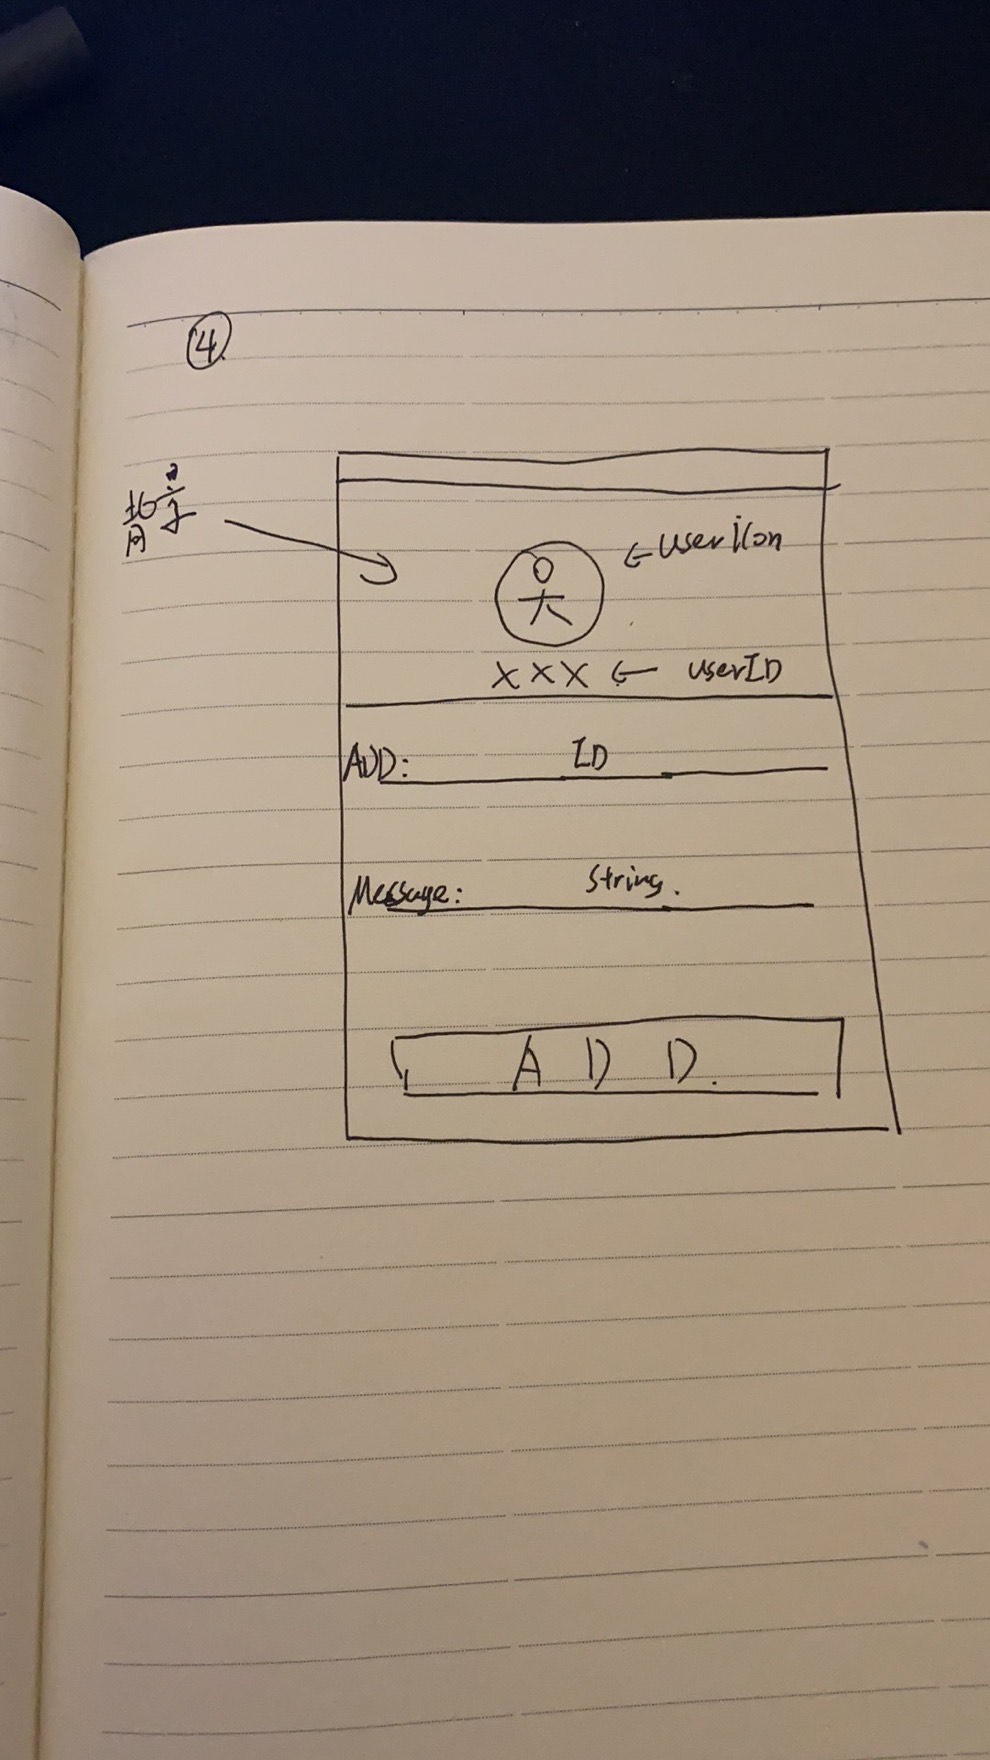 ④
背景
userIcon
xxx userID
ADD: ID
Message: String.
ADD.